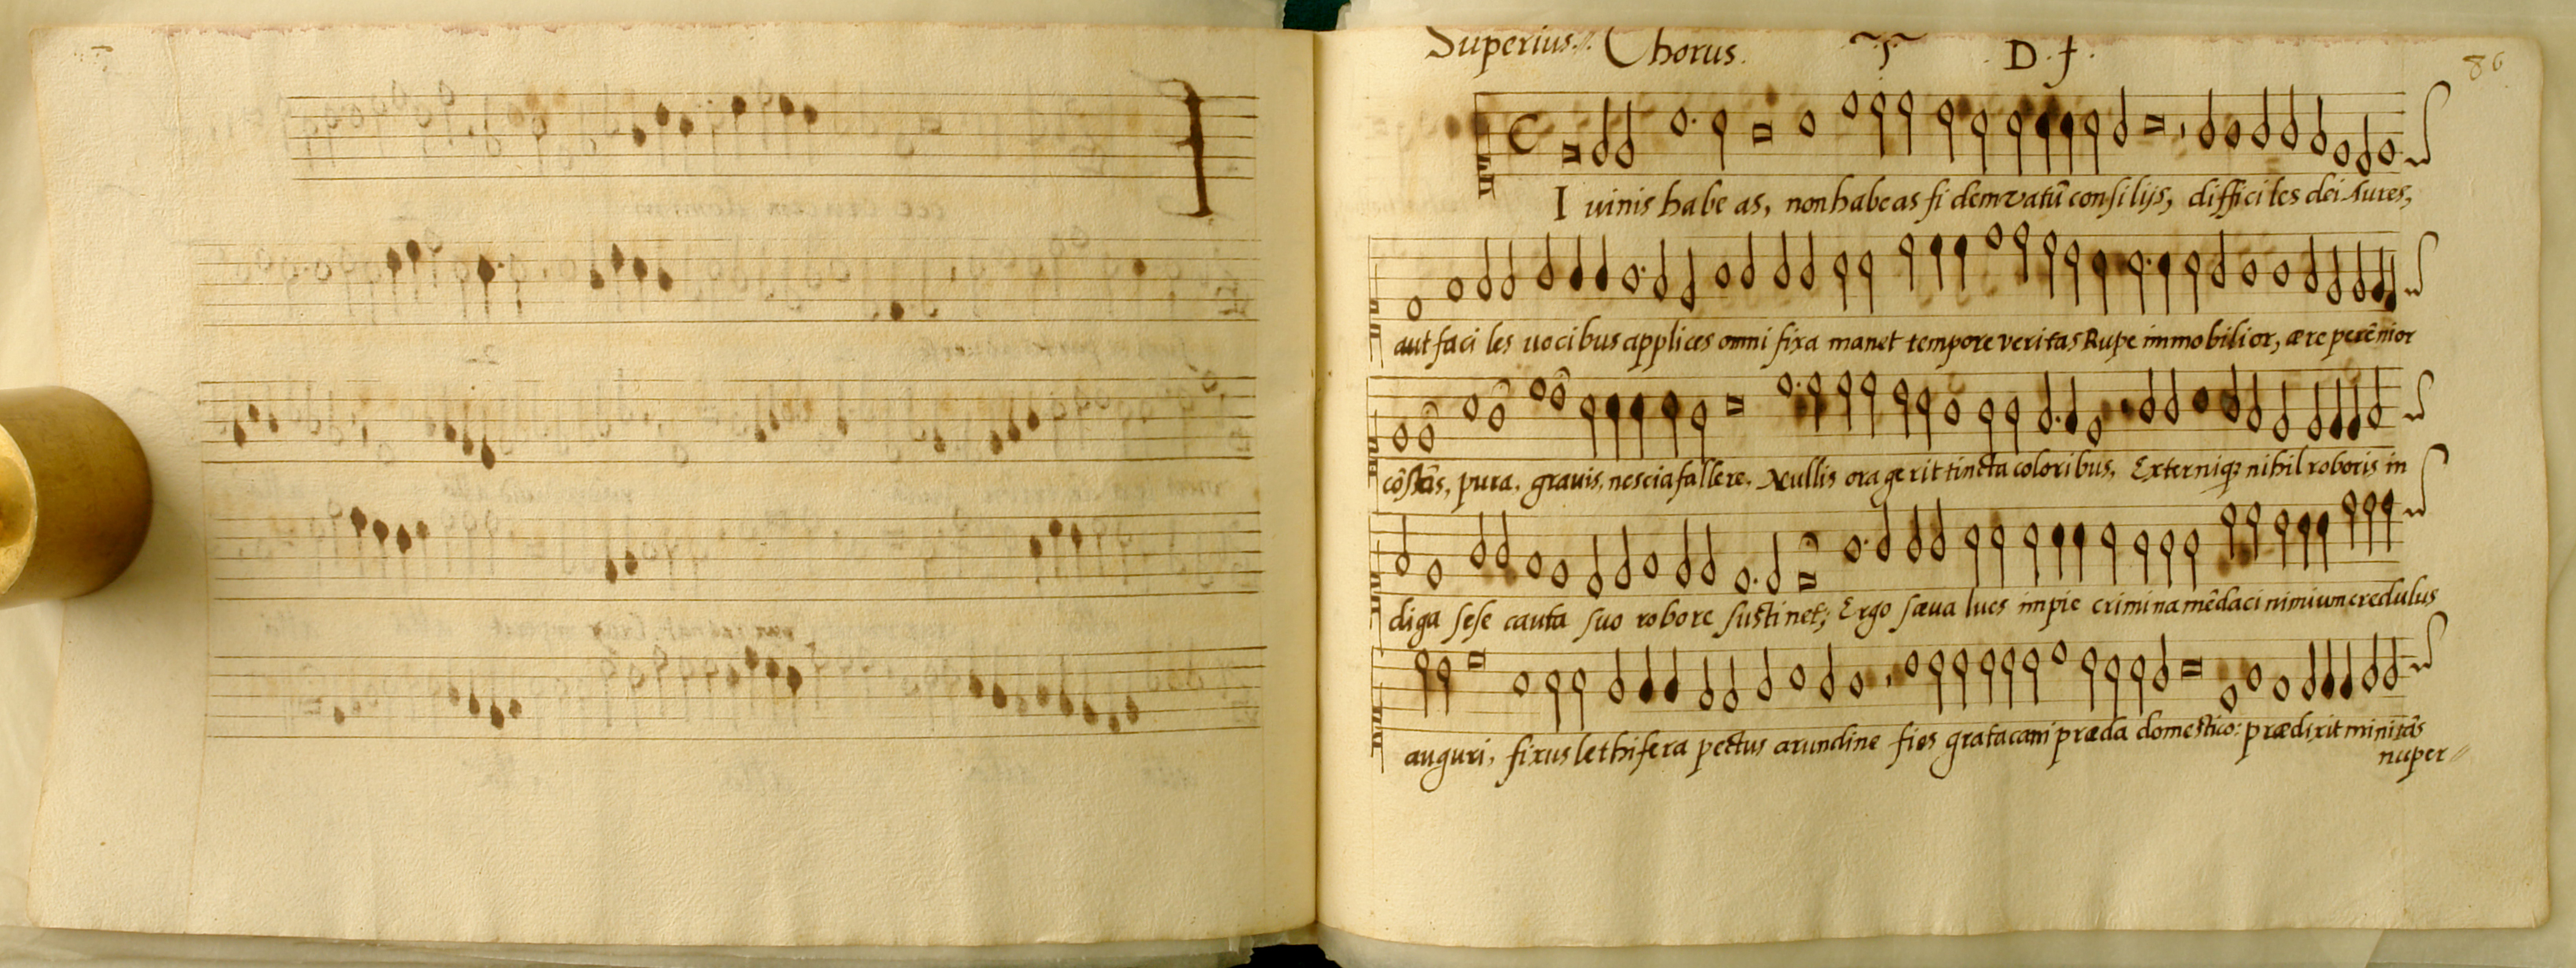 Superius. Chorus. T D. f.
86
I uinis habe as, non habeas fi dem vatū consi lijs, diffici les dei Aures,
aut faci les uocibus applices omni fixa manet tempore veritas Rupe immobilior, ære perēnior
cōstās, pura. grauis. nescia fallere. Nullis ora gerit tincta coloribus. Externiq3 nihil roboris in
diga sese cauta suo robore sustinet; Ergo sæua lues impie crimina mēdaci nimium credulus
auguri, fixus lethifera pectus arundine fies grata cani præda domestico: prædixit minitās
nuper